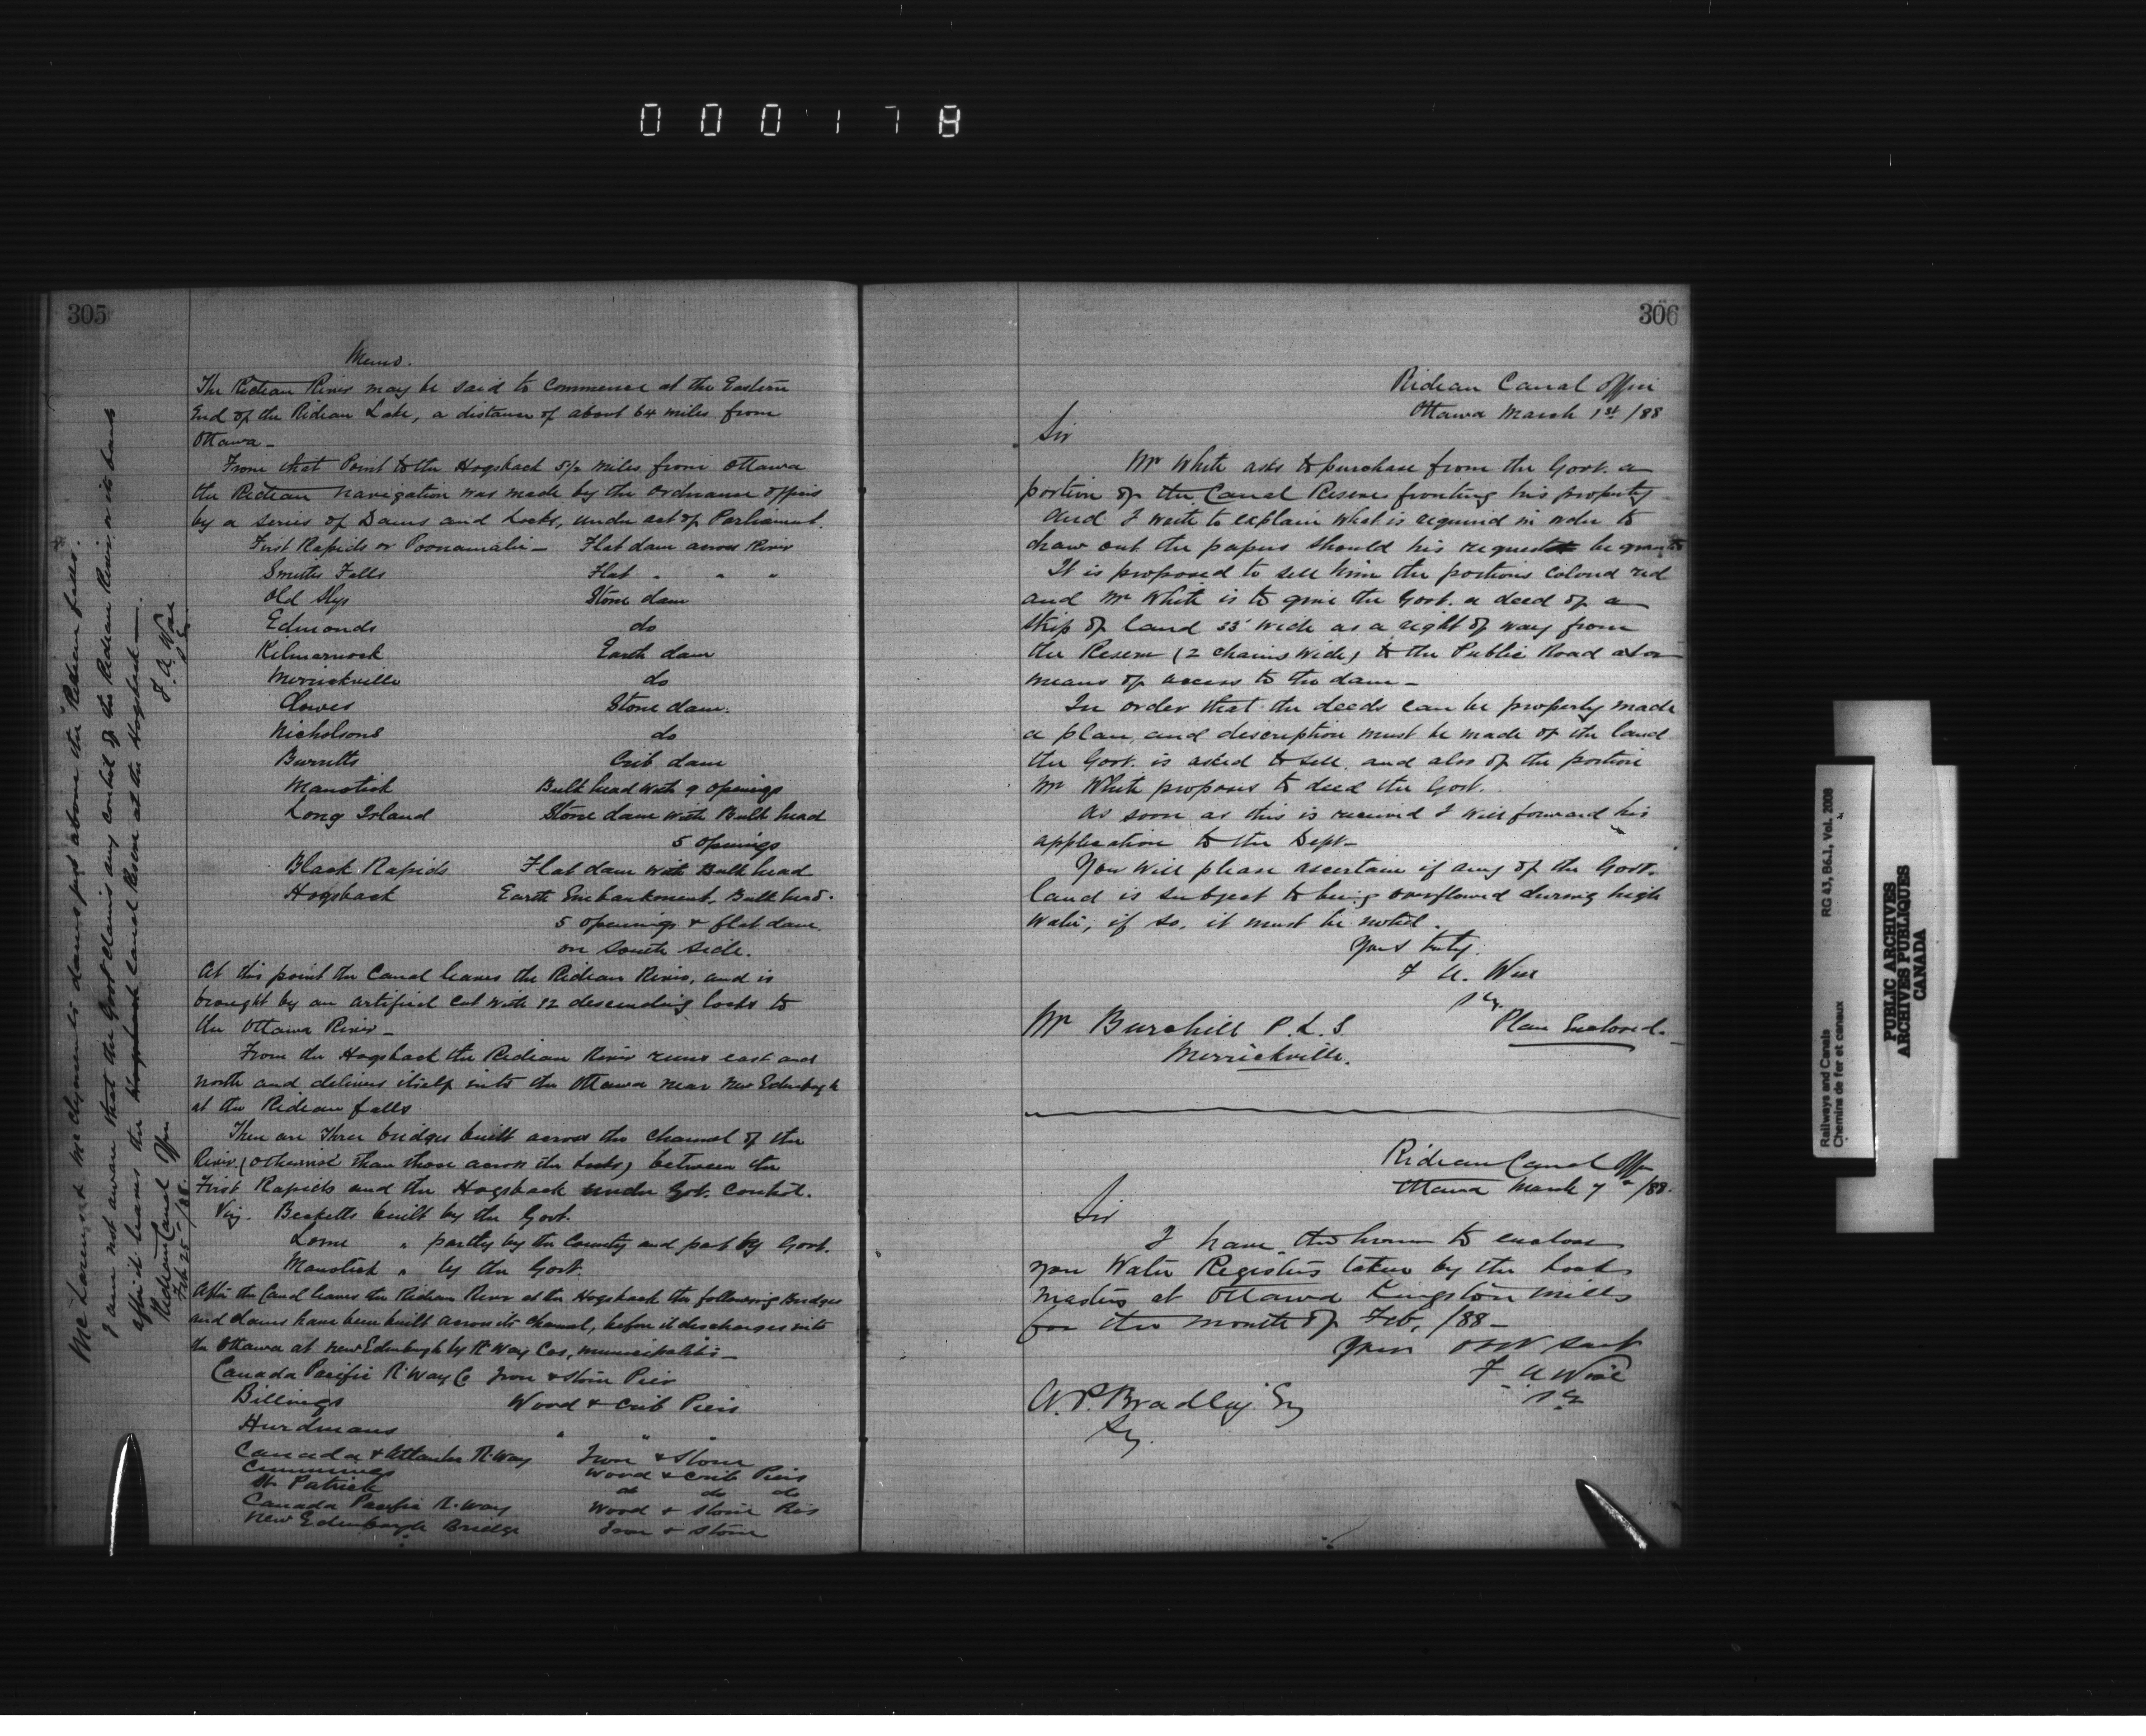 000178
305
Memo.
The Rideau River may be said to commence at the Eastern
End of the Rideau Lake, a distance of about 64 miles from
Ottawa —
From that Point to the Hogsback 5½ miles from Ottawa
the Rideau navigation was made by the Ordnance officers
by a series of Dams and Locks, under act of Parliament.
First Rapids or Poonamalie — Flat dam across River
Smiths Falls Flat " " "
Old Slys Stone dam
Edmonds do
Kilmarnock Earth dam
Merrickville do
Clowes Stone dam.
Nicholsons do
Burritts Crib dam
Manotick Bulk head with 9 openings
Long Island Stone dam with Bulk head
5 openings
Black Rapids Flat dam with Bulk head
Hogsback Earth Embankment, Bulk head.
5 openings & flat dam.
on South side.
At this point the Canal leaves the Rideau River, and is
brought by an artificial cut with 12 descending locks to
the Ottawa River —
From the Hogsback the Rideau River runs east and
north and delivers itself into the Ottawa near New Edinburgh
at the Rideau falls
There are Three bridges built across the channel of the
River (otherwise than those across the Locks) between the
First Rapids and the Hogsback under Govt. Control.
Viz. Becketts built by the Govt.
Lorne " partly by the County and part by Govt.
Manotick " by the Govt.
After the Canal leaves the Rideau River at the Hogsback the following Bridges
and dams have been built across its channel, before it discharges into
the Ottawa at New Edinburgh by R. Way Cos, municipalities —
Canada Pacific R. Way Co Iron & Stone Pier
Billings Wood & Crib Piers
Hurdmans " " "
Canada & Atlantic R. Way Iron & Stone
Cummings Wood & Crib Piers
St. Patrick do do do
Canada Pacific R. Way Wood & Stone Piers
New Edinburgh Bridge Iron & Stone
McLarens & McClyments dams just above the Rideau falls.
I am not aware that the Govt claims any control of the Rideau River or its banks
after it leaves the Hogsback land Reserve at the Hogsback —
Rideau Canal Office
Feb 25 /88.
F. A. Wise
306
Rideau Canal Office
Ottawa March 1st /88
Sir
Mr White asks to purchase from the Govt. a
portion of the Canal Reserve fronting his property
and I write to explain what is required in order to
draw out the papers should his request be granted
It is proposed to sell him the portions colored red
and Mr White is to give the Govt. a deed of a
strip of land 33' wide as a right of way from
the Reserve (2 chains wide) to the Public Road as a
means of access to the dam —
In order that the deeds can be properly made
a plan, and discription must be made of the land
the Govt. is asked to sell, and also of the portion
Mr White proposes to deed the Govt.
As soon as this is received I will forward his
application to the Dept —
You will please ascertain if any of the Govt.
land is subject to being overflowed during high
water, if so, it must be noted.
Yours truly.
F A. Wise
Mr Burchill P. L. S.
Merrickville.
Plan Enclosed —
Rideau Canal Off
Ottawa March 7th /88.
Sir
I have the honor to enclose
you Water Registers taken by the Lock
Masters at Ottawa Kingston Mills
for the month of Feb, /88 —
Your Obt Servt
F. A Wise
A. P. Bradley. Esq
Sy.
Railways and Canals
Chemins de fer et canaux
RG 43, B6.1, Vol. 2008
PUBLIC ARCHIVES
ARCHIVES PUBLIQUES
CANADA